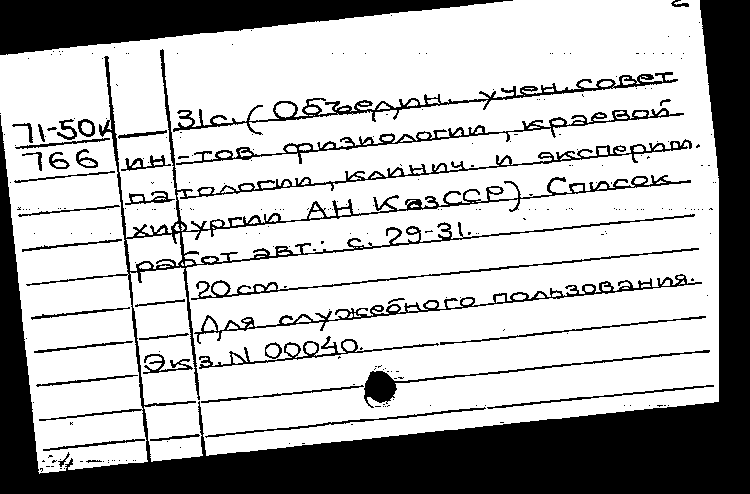 71-50к
766
31с. (Объедин. учен. совет
ин-тов физиологии, краевой
патологии, клинич. и эксперим.
хирургии АН КазССР). Список
работ авт.: с. 29-31.
20 cm.
Для служебного пользования.
Экз. N 00040.